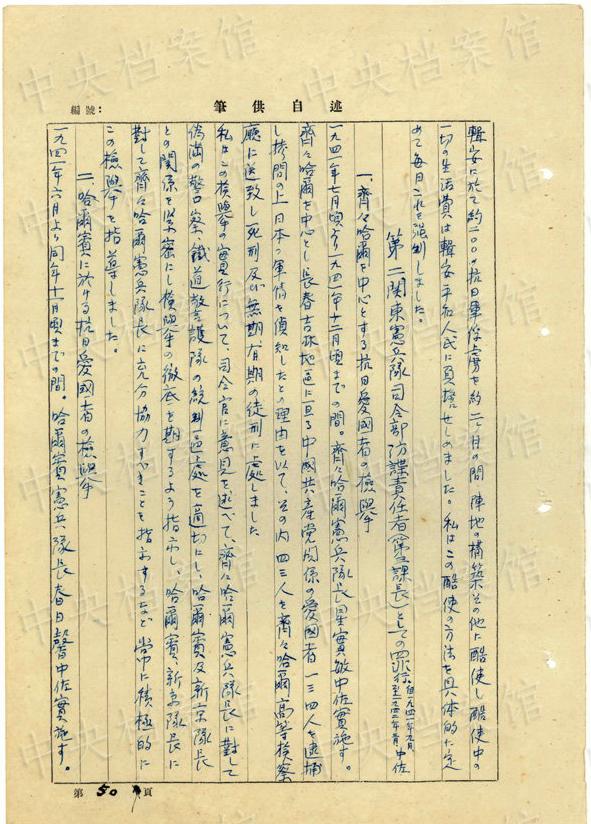 編號：
筆供自述
輯安に於て約二〇〇抗日軍俘虜を約二ヶ月の間 陣地の構築その他に酷使し酷使中の
一切の生活費は輯安平和人民に負担せしめました。私はこの酷使の方法を具体的に定
めて毎日これを强制しました。
第二 関東憲兵隊司令部防諜責任者（第三課長）としての罪行。中佐
一、齊々哈爾を中心とする抗日愛國者の檢擧
一九四一年七月頃より一九四一年十二月頃までの間。齊々哈爾憲兵隊長星實敏中佐實施す。
齊々哈爾を中心とし長春吉林地區に亘る中國共産党関係の愛國者一三四人を逮捕
し拷問の上 日本の軍情を偵知したとの理由を以て、その内 四三人を齊々哈爾高等檢察
廳に送致し死刑及び無期有期の徒刑に處しました
私はこの檢擧の實行について、司令官に意見を述べて、齊々哈爾憲兵隊長に對して
偽滿の警察、鐵道警護隊の統制區處を適切にし、哈爾賓及新京隊長
との関係を緊密にし檢擧の徹底を期するよう指示し、哈爾賓、新京隊長に
對して齊々哈爾憲兵隊長に充分協力すべきことを指示するなど 常に積極的に
この檢擧を指導しました。
二、哈爾賓に於ける抗日愛國者の檢擧
一九四一年六月より同年十一月頃までの間。哈爾賓憲兵隊長春日馨中佐實施す。
第 50 頁
中央档案馆